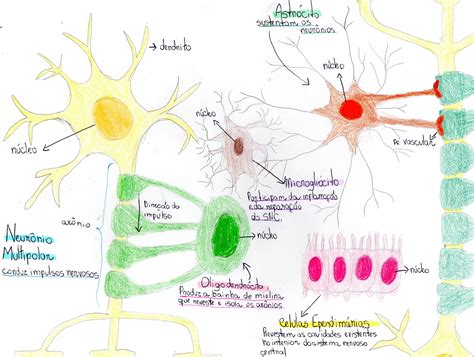 Astrócito
sustentam os
neurônios
dendrito
núcleo
núcleo
núcleo
pé vascular
Microgliócito
Participam da inflamação
e da reparação
do SNC.
axônio
Direção do
impulso
Neurônio
Multipolar
conduz impulsos nervosos
núcleo
núcleo
Oligodendrócito
Produz a bainha de mielina
que reveste e isola os axônios.
Células Ependimárias
Revestem as cavidades existentes
no interior do sistema nervoso
central